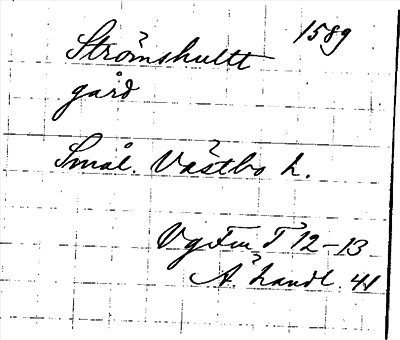 1589
Strömshultt
gård
Smål. Västbo h.
Vg Fm T 12-13
Å. handl. 41